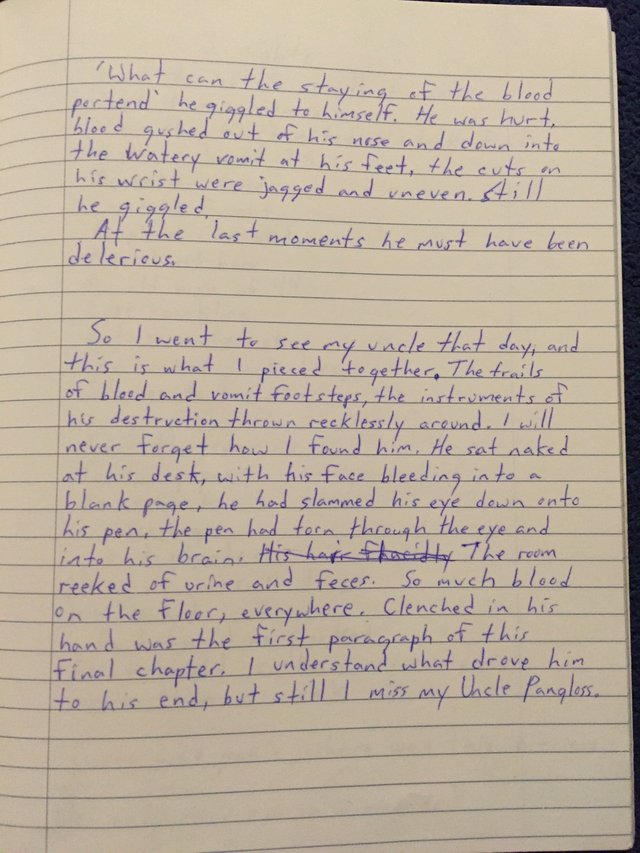 'What can the staying of the blood
portend' he giggled to himself. He was hurt,
blood gushed out of his nose and down into
the watery vomit at his feet, the cuts on
his wrist were jagged and uneven. Still
he giggled.
At the last moments he must have been
delerious.
So I went to see my uncle that day, and
this is what I pieced together. The trails
of blood and vomit footsteps, the instruments of
his destruction thrown recklessly around. I will
never forget how I found him. He sat naked
at his desk, with his face bleeding into a
blank page, he had slammed his eye down onto
his pen, the pen had torn through the eye and
into his brain. His hair The room
reeked of urine and feces. So much blood
on the floor, everywhere. Clenched in his
hand was the first paragraph of this
final chapter. I understand what drove him
to his end, but still I miss my Uncle Pangloss.